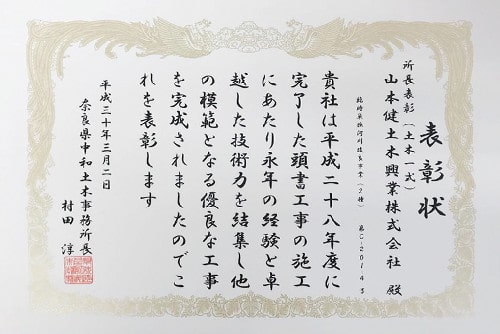 表彰状
所長表彰(土木一式)
山本健土木興業株式会社 殿
河川改良事業(2種) 第C-2014号
貴社は平成二十八年度に
完了した頭書工事の施工
にあたり永年の経験と卓
越した技術力を結集し他
の模範となる優良な工事
を完成されましたのでこ
れを表彰します
平成三十年三月二日
奈良県中和土木事務所長
村田 淳